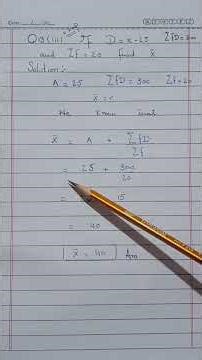 Q3(iii) If D = x-25 ΣfD=300
and Σf=20 find x̄
Solution:-
A = 25 ΣfD = 300 Σf=20
x̄ = ?
We know that
x̄ = A + ΣfD/Σf
= 25 + 300/20
= 15
= 40
x̄ = 40 Ans